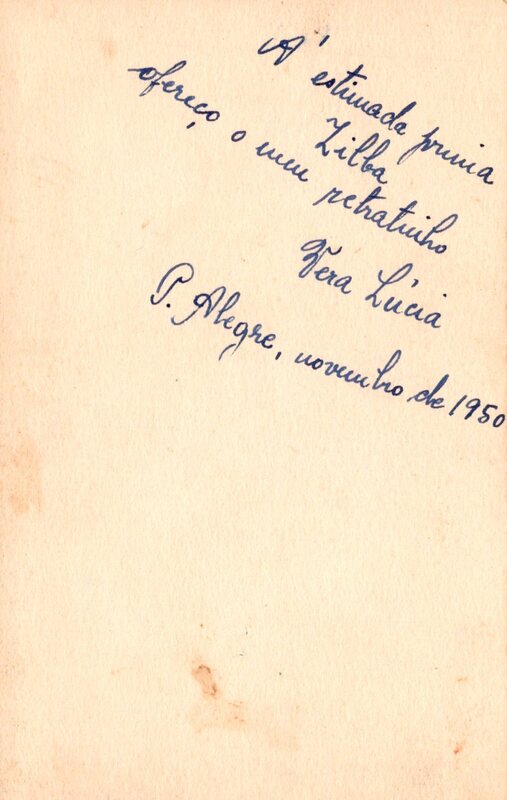 A' estimada prima
Zilba
ofereço o meu retratinho
Vera Lúcia
P. Alegre, novembro de 1950